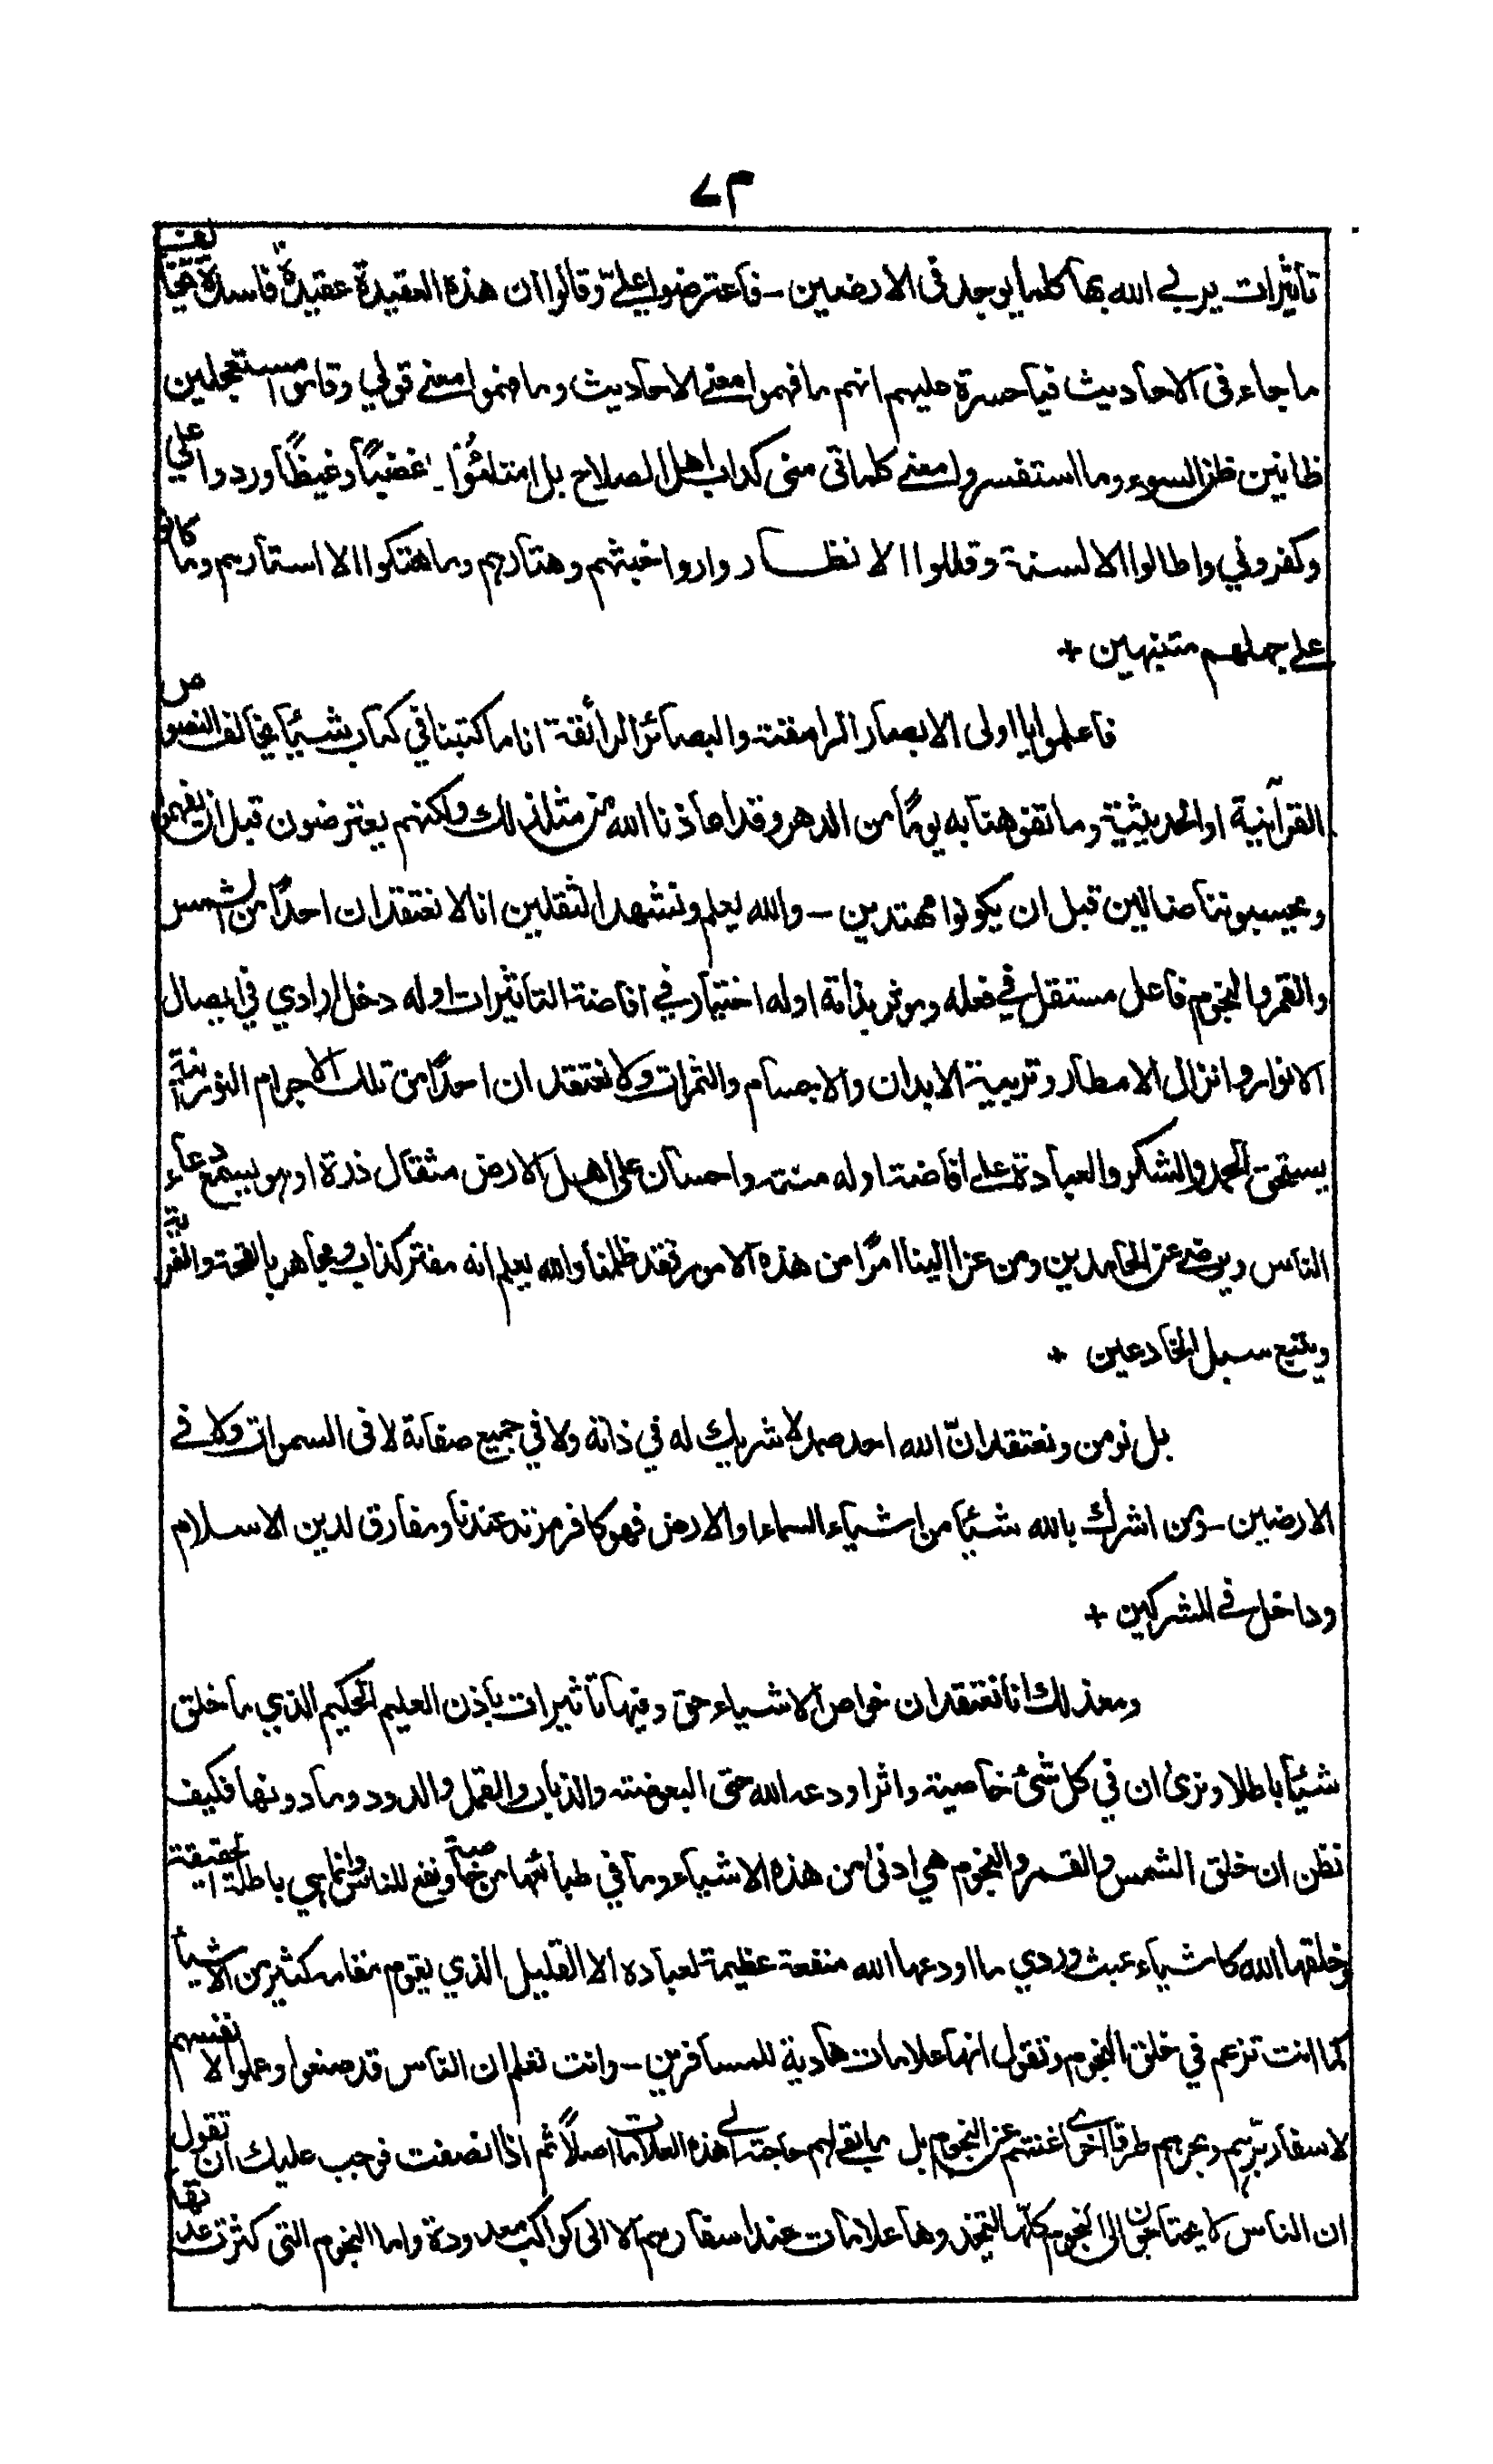 ٧٣
تأثيرات يربى الله بها كلما يوجد فى الارضين - فاعترضوا علىّ وقالوا ان هذه العقيدة عقيدة فاسدة تخالف
ما جاء فى الاحاديث فيا حسرة عليهم انهم ما فهموا معنے الاحاديث وما فهموا معنے قولي وقاموا مستعجلين
ظانين ظن السوء وما استفسروا معنے كلماتى منى كداب اهل الصلاح بل امتلئوا غضبًا وغيظًا وردوا علي
وكفروني واطالوا الالسنة وقللوا الانظار واروا خبثهم وهتارهم وما هتكوا الا استارهم وما كانوا
على جهلهم متنبهين +
فاعلموا يا اولى الابصار الرامقة والبصائر الرائقة انا ما كتبنا في كتاب شيئًا يخالف النصوص
القرآنية او الحديثية وما تفوهنا به يومًا من الدهر وقد اعاذنا الله من مثل ذلك ولكنهم يعترضون قبل ان يفهموا
ويحسبوننا ضالين قبل ان يكونوا مهتدين - والله يعلم ونشهد الثقلين انا لا نعتقد ان احدًا من الشمس
والقمر والنجوم فاعل مستقل في فعله وموثر بذاته اوله اختيار في افاضة التاثيرات اوله دخل ارادي في ايصال
الانوار وانزال الامطار وتربية الابدان والاجسام والثمرات ولا نعتقد ان احدًا من تلك الاجرام النورانية
يستحق الحمد والشكر والعبادة على افاضة اوله منة واحسان على اهل الارض مثقال ذرة او هو يسمع دعاء
الناس ويرضے عن الحامدين ومن عزا الينا امرًا من هذه الامور فقد ظلمنا والله يعلم انه مفتر كذاب ومجاهر بالقحة والفرية
ويتبع سبل الخادعين +
بل نومن ونعتقد انّ الله احد صمد لا شريك له في ذاته ولا في جميع صفاته لا فى السموات ولا فے
الارضين - ومن اشرك بالله شيئًا من اشياء السماء او الارض فهو كافر مرتد عندنا ومفارق لدين الاسلام
وداخل فے المشركين +
ومع ذلك انا نعتقد ان خواص الاشياء حق وفيها تاثيرات باذن العليم الحكيم الذي ما خلق
شيئًا باطلا ونرى ان في كل شئ خاصية واثرا اودعه الله حتى البعوضة والذباب والقمل والدود وما دونها فكيف
نظن ان خلق الشمس والقمر والنجوم هي ادنى من هذه الاشياء وما في طبائعها من خاصية ونفع للناس وانما هي باطلة الحقيقة
وخلقها الله كاشياء عبث وردي ما اودعها الله منفعة عظيمة لعباده الا القليل الذي يقوم مقامه كثير من الاشياء
كما انت تزعم في خلق النجوم وتقول انها علامات هادية للمسافرين - وانت تعلم ان الناس قد صنعوا وعملوا لانفسهم
لاسفار برّهم وبحرهم طرقا اخرى اغنتهم عن النجوم بل ما بقے لهم حاجة الے هذه العلامات اصلًا ثم اذا انصفت فوجب عليك ان تقول
ان الناس لا يحتاجون الى النجوم كلّها ليتخذوها علامات عند اسفارهم الا الى كواكب معدودة واما النجوم التى كثرت عدتها